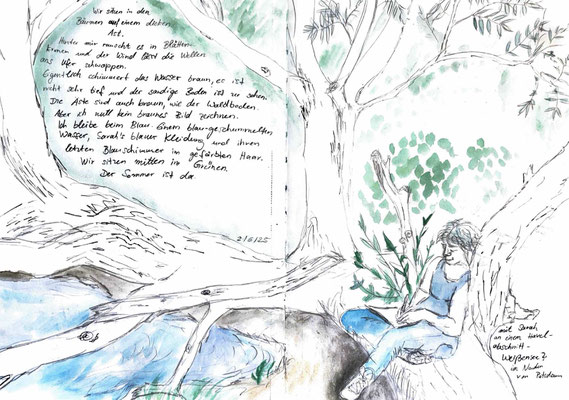 Wir sitzen in den
Bäumen auf einem dicken
Ast.
Hinter mir rauscht es in Blätter-
kronen und der Wind lässt die Wellen
ans Ufer schwappen.
Eigentlich schimmert das Wasser braun, es ist
nicht sehr tief und der sandige Boden ist zu sehen.
Die Äste sind auch braun, wie der Waldboden.
Aber ich will kein braunes Bild zeichnen.
Ich bleibe beim Blau-Grün blau-geschummelten
Wasser, Sarah's blauer Kleidung und ihren
letzten Blauschimmer im gefärbten Haar.
Wir sitzen mitten im Grünen.
Der Sommer ist da.
2/6/25
mit Sarah
an einem Havel-
abschnitt -
Weißensee?
im Norden
von Potsdam